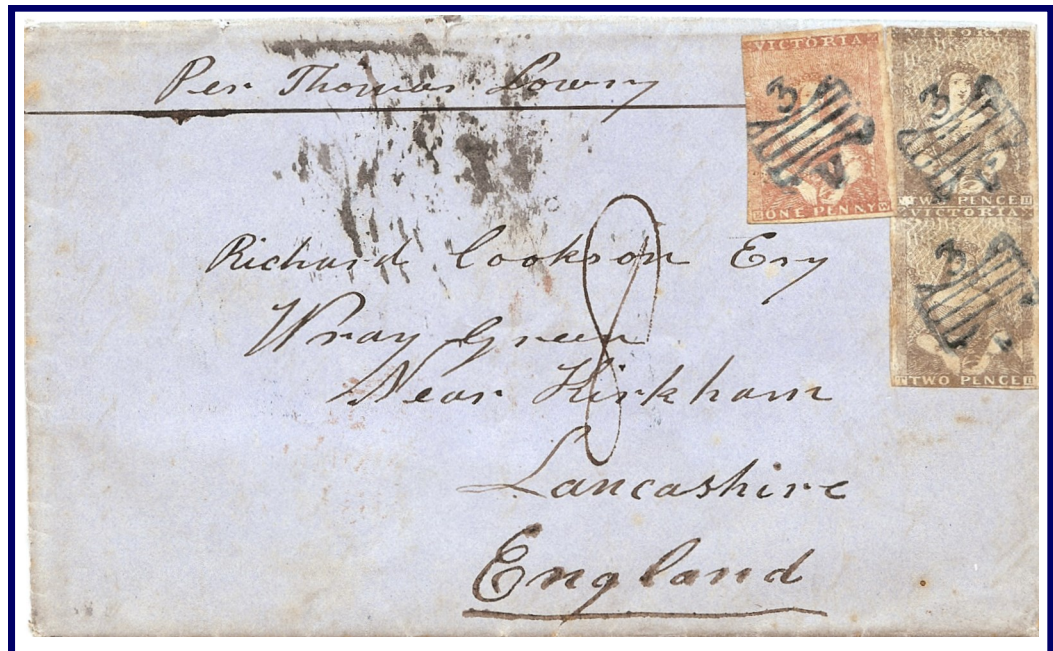 Per Thomas Lowry
VICTORIA
ONE PENNY
3
V
VICTORI
TWO PENCE H
3
VICTORIA
T TWO PENCE H
3
8
Richard Cookson Esq
Wray Green
Near Kirkham
Lancashire
England